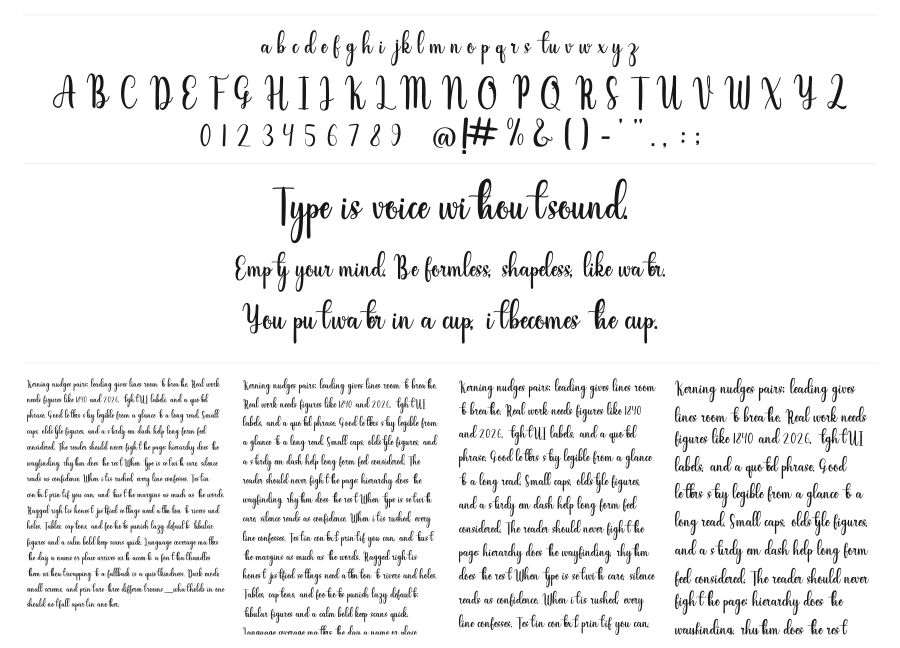 a b c d e f g h i j k l m n o p q r s t u v w x y z
A B C D E F G H I J K L M N O P Q R S T U V W X Y Z
0 1 2 3 4 5 6 7 8 9 @ ! # % & ( ) - ' " . , : ;
Type is voice without sound.
Empty your mind. Be formless, shapeless, like water.
You put water in a cup, it becomes the cup.
Kerning nudges pairs; leading gives lines room to breathe. Real work
needs figures like 1840 and 2026, tight UI labels, and a quoted
phrase. Good letters stay legible from a glance to a long read. Small
caps, oldstyle figures, and a sturdy em dash help long form feel
considered. The reader should never fight the page; hierarchy does the
wayfinding, rhythm does the rest. When type is set with care, silence
reads as confidence. When it is rushed, every line confesses. Test in
context, print if you can, and trust the margins as much as the words.
Ragged right is honest; justified settings need attention to rivers and
holes. Tables, captions, and footnotes punish lazy defaults; tabular
figures and a calm bold keep scans quick. Language coverage matters
the day a name or place arrives with accents; a font that handles
them without swapping to a fallback is a quiet kindness. Dark mode,
small screens, and print are three different rooms—what holds in one
should not fall apart in another.
Kerning nudges pairs; leading gives lines room to breathe.
Real work needs figures like 1840 and 2026, tight UI
labels, and a quoted phrase. Good letters stay legible from
a glance to a long read. Small caps, oldstyle figures, and
a sturdy em dash help long form feel considered. The
reader should never fight the page; hierarchy does the
wayfinding, rhythm does the rest. When type is set with
care, silence reads as confidence. When it is rushed, every
line confesses. Test in context, print if you can, and trust
the margins as much as the words. Ragged right is
honest; justified settings need attention to rivers and holes.
Tables, captions, and footnotes punish lazy defaults;
tabular figures and a calm bold keep scans quick.
Language coverage matters the day a name or place
Kerning nudges pairs; leading gives lines room
to breathe. Real work needs figures like 1840
and 2026, tight UI labels, and a quoted
phrase. Good letters stay legible from a glance
to a long read. Small caps, oldstyle figures,
and a sturdy em dash help long form feel
considered. The reader should never fight the
page; hierarchy does the wayfinding, rhythm
does the rest. When type is set with care, silence
reads as confidence. When it is rushed, every
line confesses. Test in context, print if you can,
Kerning nudges pairs; leading gives
lines room to breathe. Real work needs
figures like 1840 and 2026, tight UI
labels, and a quoted phrase. Good
letters stay legible from a glance to a
long read. Small caps, oldstyle figures,
and a sturdy em dash help long form
feel considered. The reader should never
fight the page; hierarchy does the
wayfinding, rhythm does the rest.